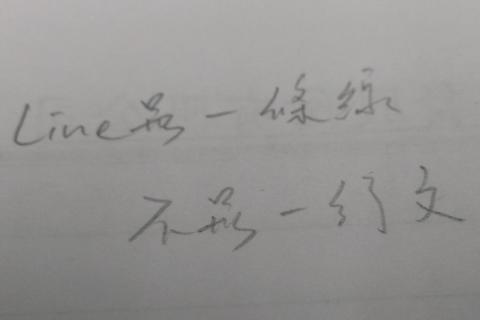 Line是一條線
不是一行文